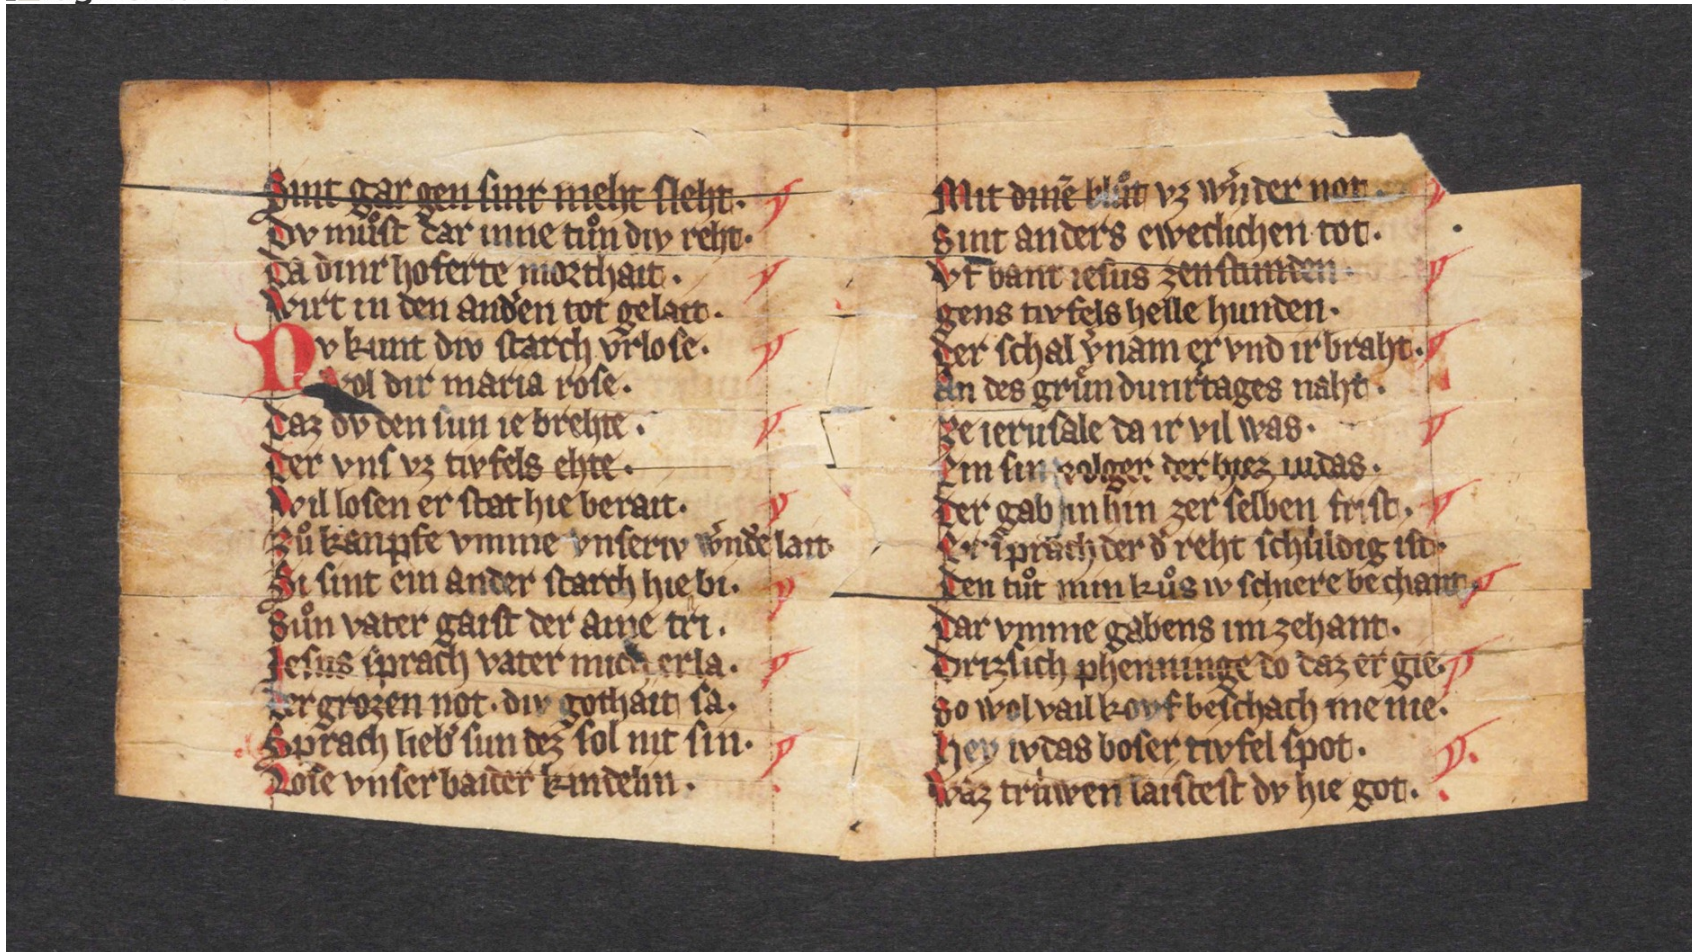 Sint gar gen sinr meht sleht.
Dv mu̍st dar inne tu̍n div reht.
Da dinr hoferte morthait.
Wirt in den andˀen tot gelait.
Nv kunt div starch vˀrlose.
Wol dir maria rose.
Daz dv den sun ie brehte.
Der vns vz tivfels ehte.
Wil losen er stat hie berait.
Zů kanpfe vmme vnseriv wˀndˀe lait
Si sint ein ander starch hie bi.
Sůn vater gaist der aine tri.
Jesus sprach vater mich erla.
der grozen not. div gothait sa.
Sprach liebˀ sun dez sol nit sin.
Lose vnser baider kindelin.
Mit dinē blůt vz wˀnder not.
Sint anders eweclichen tot.
Vf bant iesus zen stunden.
gens tivfels helle hunden.
Der schal vˀnam er vnd ir braht.
An des grůn dunrtages naht.
Ze ierusale da ir vil was.
Ein sin volger der hiez iudas.
Der gab in hin zer selben frist.
Er sprach der dˀ reht schuldig ist.
Den tůt min kůs iv schiere bechant.
Dar vmme gabens im zehant.
Drizsich phenninge do daz er gie.
So wol vail kovf beschach me nie.
Hey ivdas boser tivfel spot.
Waz truwen laistest dv hie got.